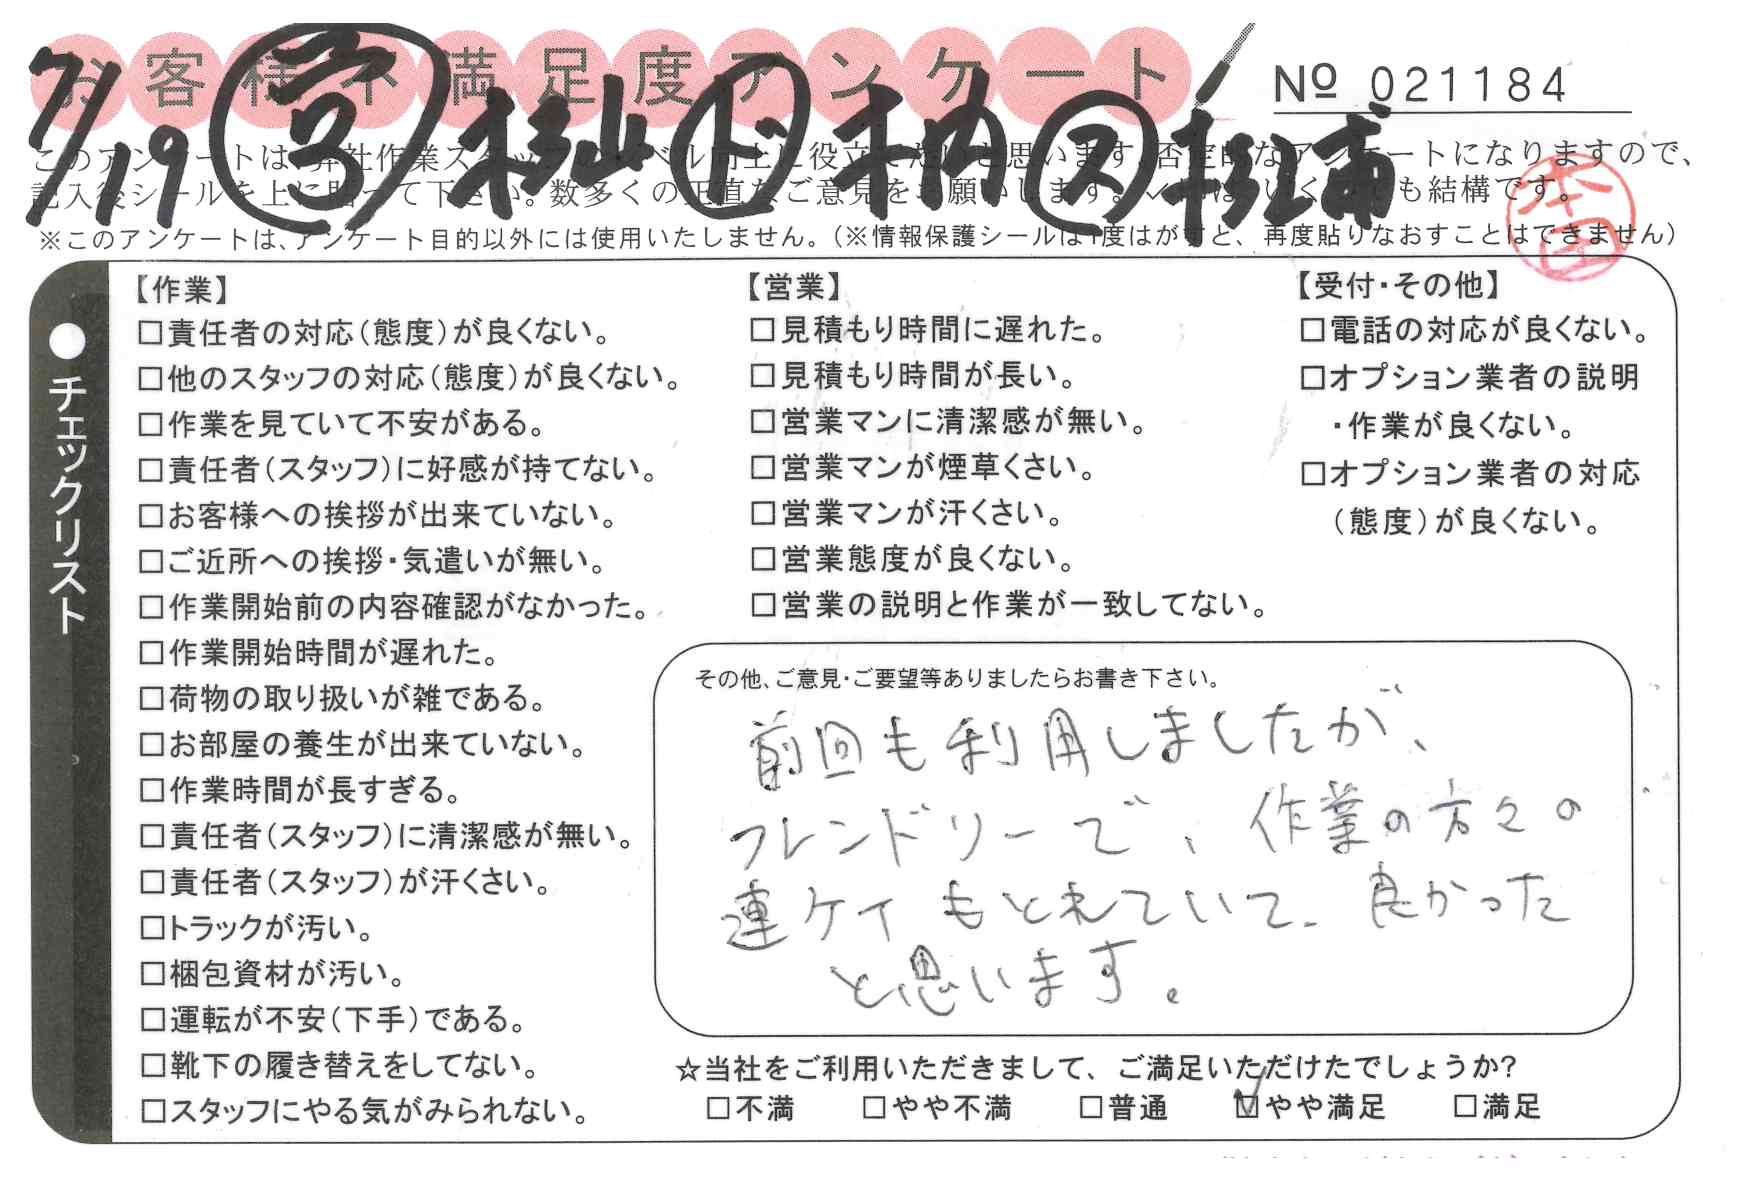 お客様不満足度アンケート
№ 021184
7/19 営 杉山 ド 柿 ス 杉浦
このアンケートは、弊社作業スタッフのレベル向上に役立てたいと思います。否定的なアンケートになりますので、
記入後シールを上に貼って下さい。数多くの正直なご意見をお願いします。
も結構です。
※このアンケートは、アンケート目的以外には使用いたしません。(※情報保護シールは1度はがすと、再度貼りなおすことはできません)
●チェックリスト
【作業】
□責任者の対応(態度)が良くない。
□他のスタッフの対応(態度)が良くない。
□作業を見ていて不安がある。
□責任者(スタッフ)に好感が持てない。
□お客様への挨拶が出来ていない。
□ご近所への挨拶・気遣いが無い。
□作業開始前の内容確認がなかった。
□作業開始時間が遅れた。
□荷物の取り扱いが雑である。
□お部屋の養生が出来ていない。
□作業時間が長すぎる。
□責任者(スタッフ)に清潔感が無い。
□責任者(スタッフ)が汗くさい。
□トラックが汚い。
□梱包資材が汚い。
□運転が不安(下手)である。
□靴下の履き替えをしてない。
□スタッフにやる気がみられない。
【営業】
□見積もり時間に遅れた。
□見積もり時間が長い。
□営業マンに清潔感が無い。
□営業マンが煙草くさい。
□営業マンが汗くさい。
□営業態度が良くない。
□営業の説明と作業が一致してない。
【受付・その他】
□電話の対応が良くない。
□オプション業者の説明
・作業が良くない。
□オプション業者の対応
(態度)が良くない。
その他、ご意見・ご要望等ありましたらお書き下さい。
前回も利用しましたが、
フレンドリーで、作業の方々の
連ケイもとれていて、良かった
と思います。
☆当社をご利用いただきまして、ご満足いただけたでしょうか?
□不満 □やや不満 □普通 ☑やや満足 □満足